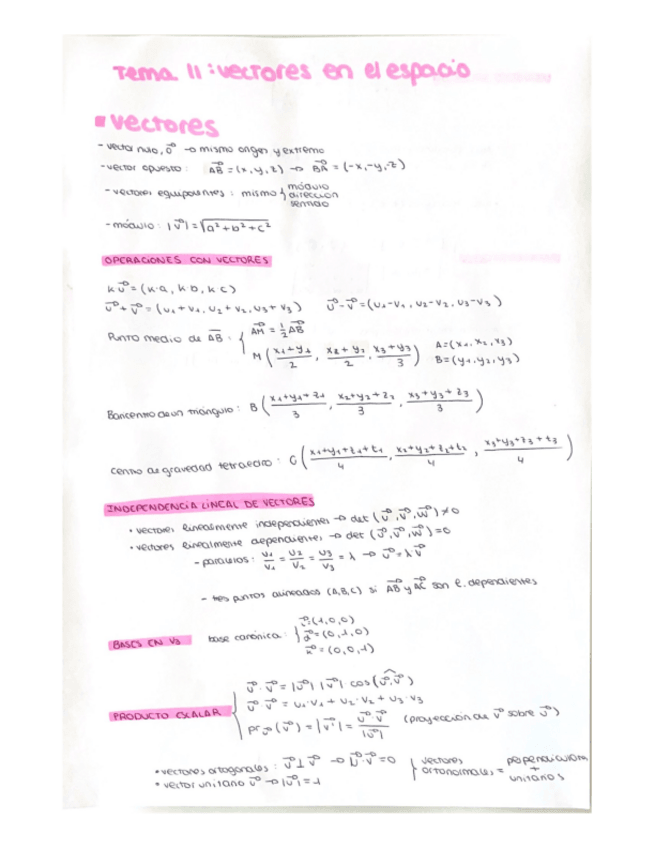 Tema 11: vectores en el espacio
vectores
- vector nulo, 0⃗ → mismo origen y extremo
- vector opuesto: AB⃗ = (x, y, z) → BA⃗ = (-x, -y, -z)
- vectores equipolentes: mismo { módulo
dirección
sentido
- módulo: |v⃗| = √(a² + b² + c²)
OPERACIONES CON VECTORES
k v⃗ = (k·a, k·b, k c)
u⃗ + v⃗ = (u1 + v1, u2 + v2, u3 + v3) u⃗ - v⃗ = (u1 - v1, u2 - v2, u3 - v3)
Punto medio de AB: { AM⃗ = 1/2 AB⃗
M ( x1+y1/2, x2+y2/2, x3+y3/3 ) A = (x1, x2, x3)
B = (y1, y2, y3)
Baricentro de un triángulo: B ( x1+y1+z1/3, x2+y2+z2/3, x3+y3+z3/3 )
centro de gravedad tetraedro: G ( x1+y1+z1+t1/4, x2+y2+z2+t2/4, x3+y3+z3+t3/4 )
INDEPENDENCIA LINEAL DE VECTORES
• vectores linealmente independientes → det (u⃗, v⃗, w⃗) ≠ 0
• vectores linealmente dependientes → det (u⃗, v⃗, w⃗) = 0
- paralelos: u1/v1 = u2/v2 = u3/v3 = λ → u⃗ = λ v⃗
- tres puntos alineados (A,B,C) si AB⃗ y AC⃗ son l. dependientes
BASES EN V3 base canónica: { i⃗ = (1,0,0)
j⃗ = (0,1,0)
k⃗ = (0,0,1)
PRODUCTO ESCALAR { u⃗ · v⃗ = |u⃗| |v⃗| · cos (u⃗, v⃗)
u⃗ · v⃗ = u1·v1 + u2·v2 + u3·v3
pr u⃗ (v⃗) = |v⃗'| = u⃗·v⃗/|u⃗| (proyección de v⃗ sobre u⃗)
• vectores ortogonales: u⃗ ⊥ v⃗ → u⃗·v⃗ = 0 { vectores ortonormales = perpendiculares + unitarios
• vector unitario v⃗ → |v⃗| = 1